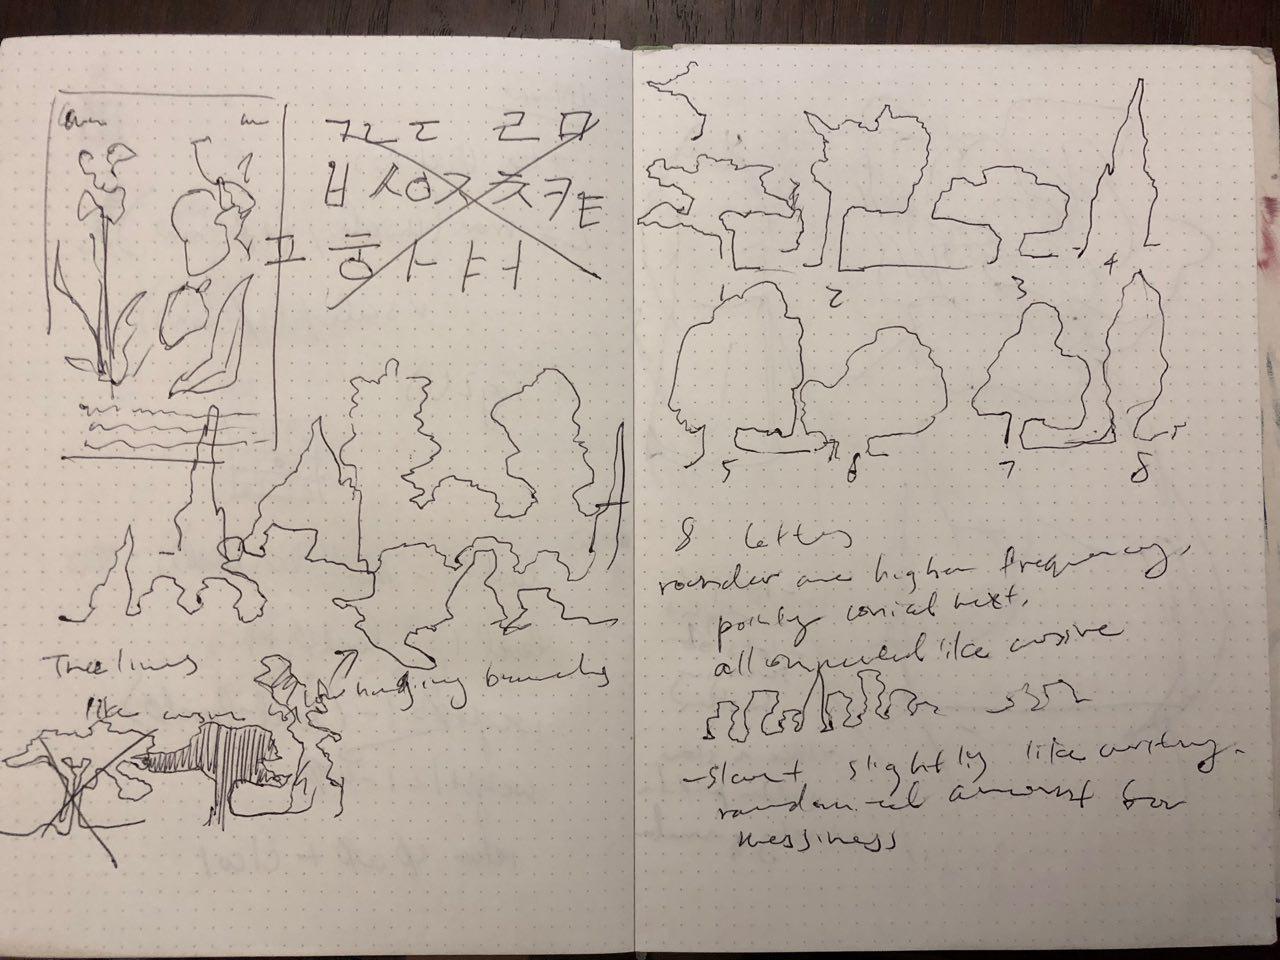 ㄱㄴㄷ ㄹㅁ
ㅂㅅㅇㅈㅊㅋㅌ
ㅍㅎㅏㅑㅓ
Treelines
like cursive
hanging branches
1 2 3 4
5 6 7 8
8 letters
rounder are higher frequency,
pointy conical next.
all connected like cursive
- slant slightly like writing.
randomized amount for
messiness